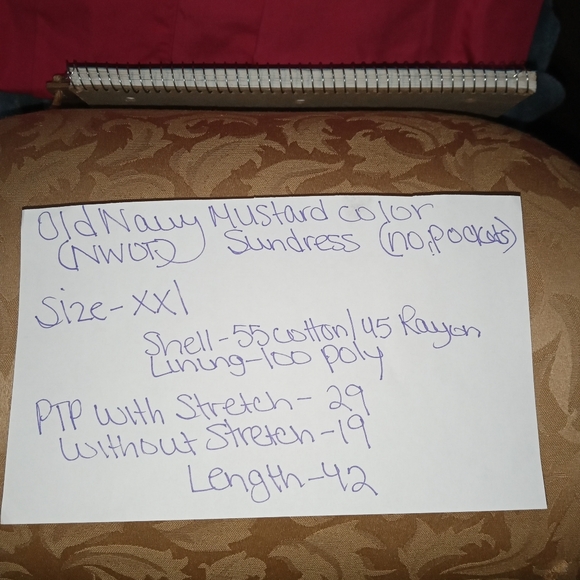 Old Navy Mustard color
(NWOT) Sundress (no pockets)
Size-XXl
Shell-55 cotton/45 Rayon
Lining-100 poly
PTP with Stretch-29
without Stretch-19
Length-42